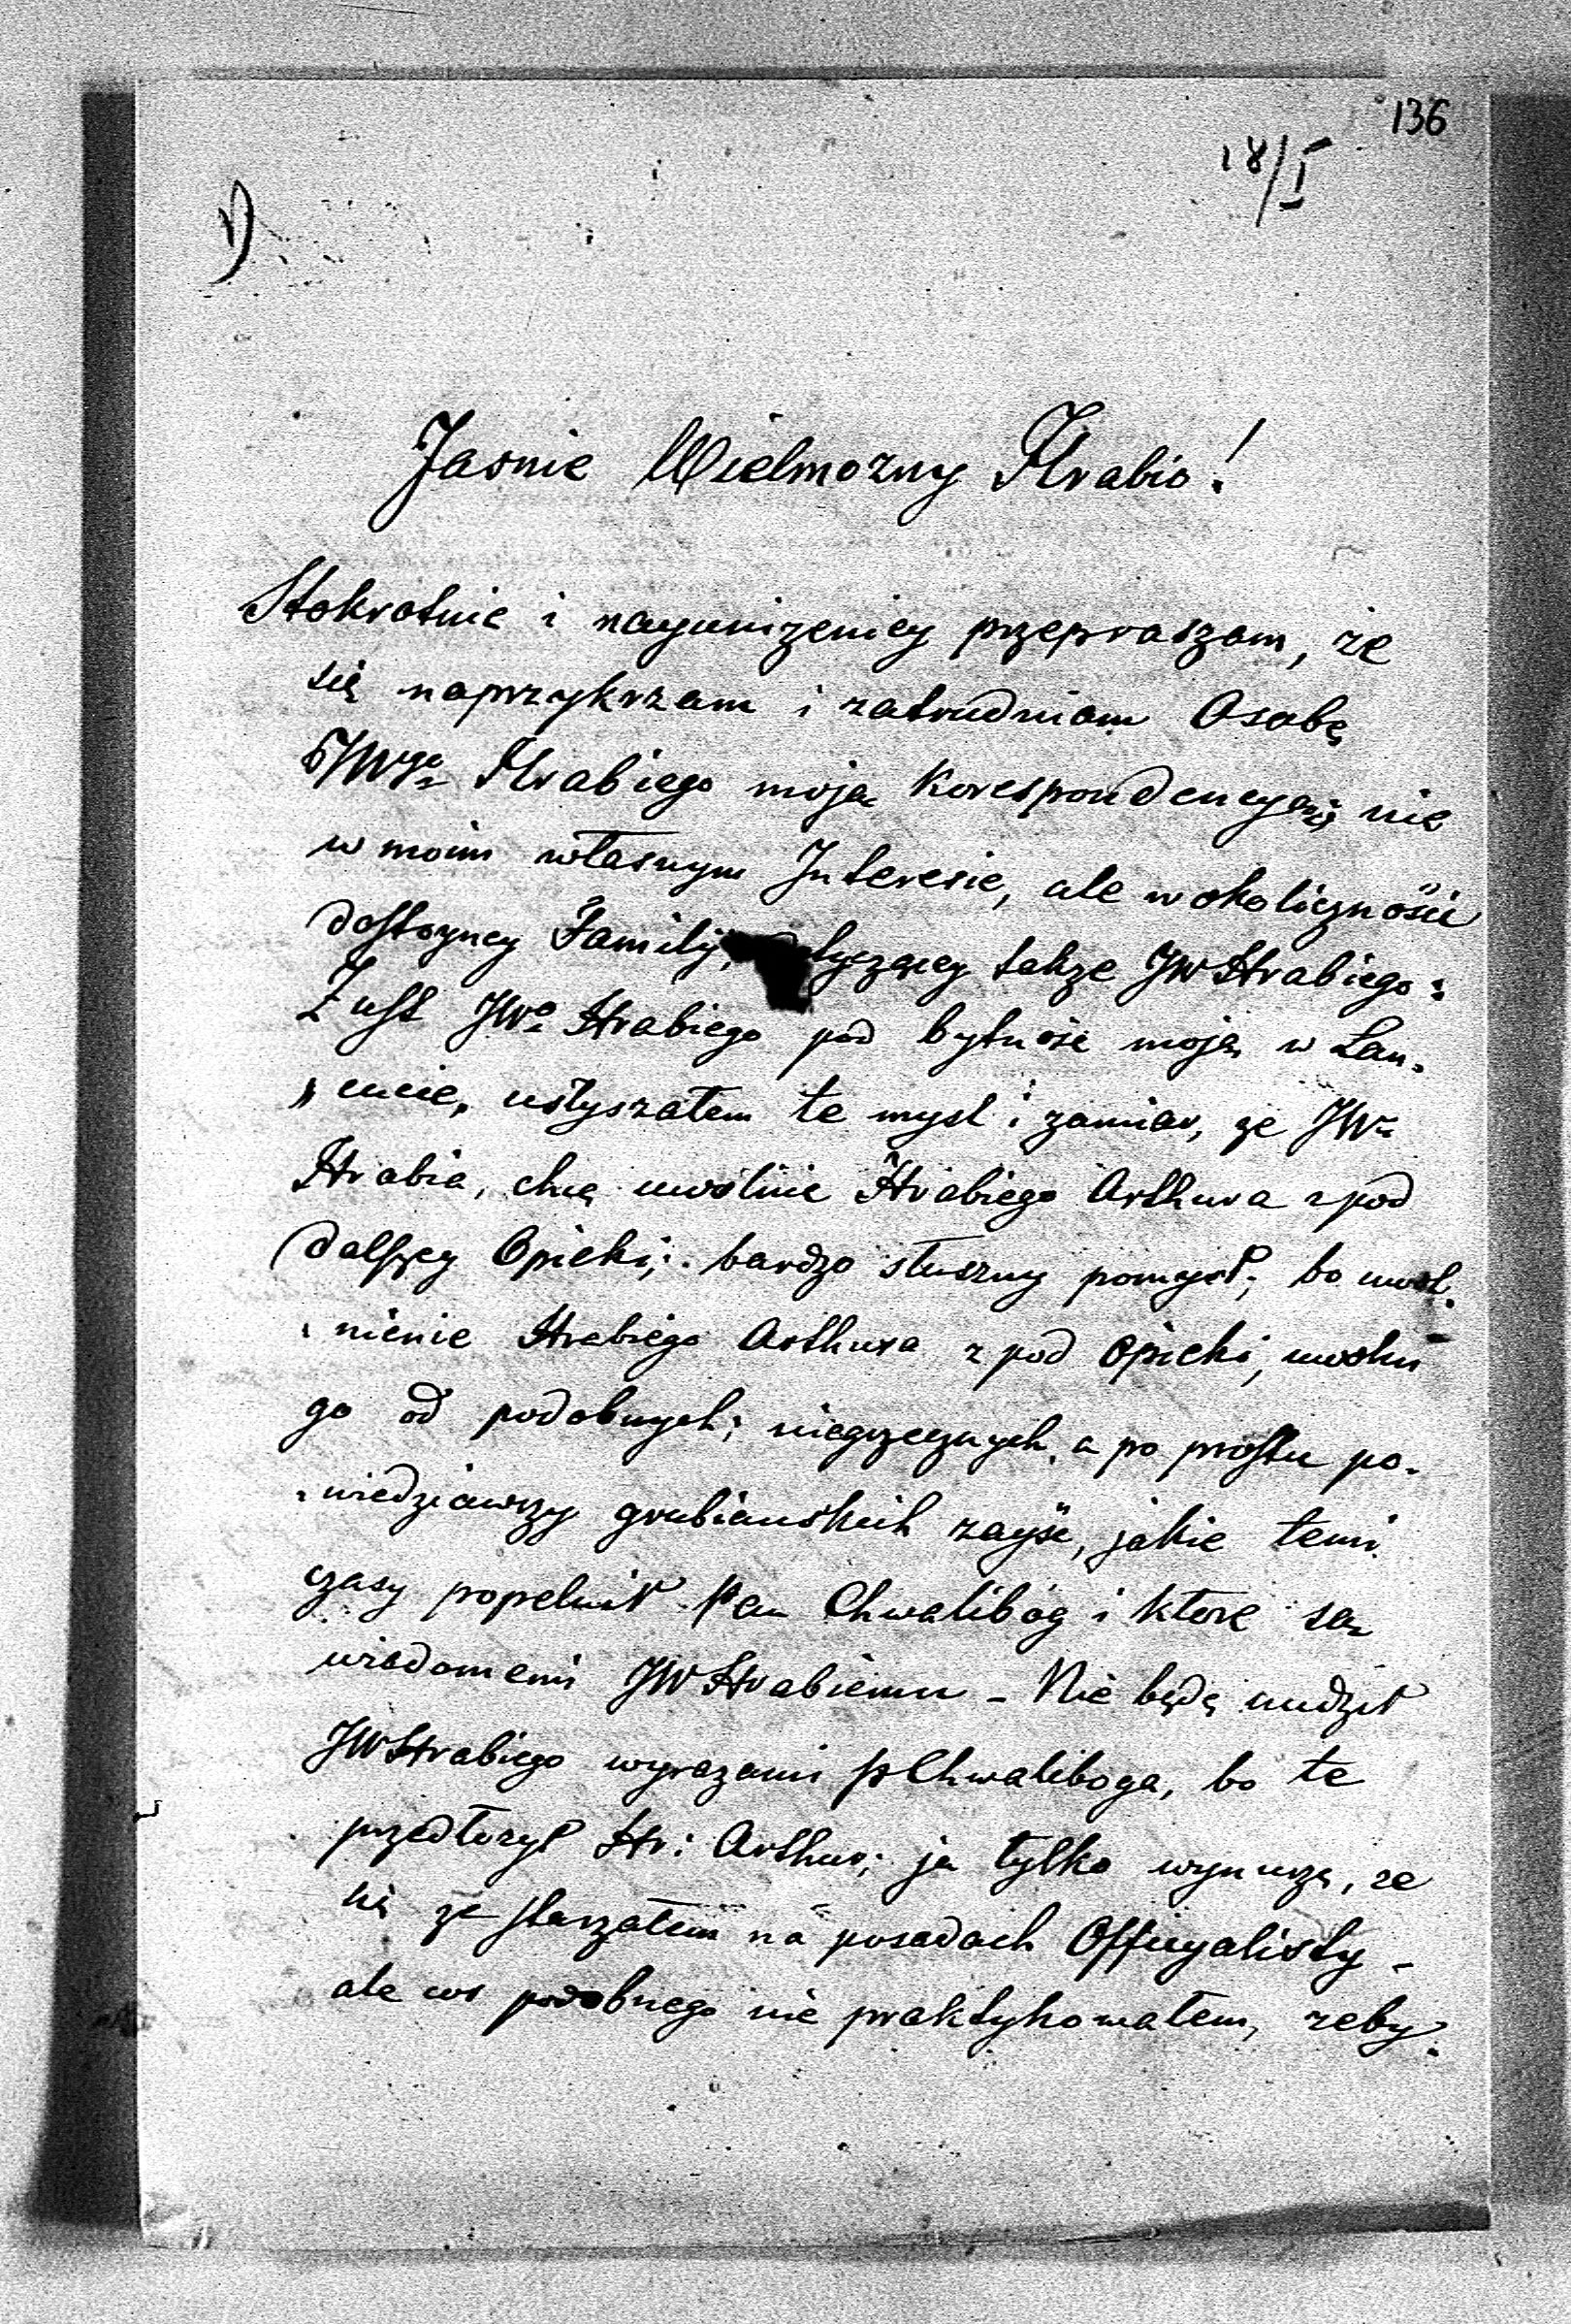 136
18/I
1)
Jasnie Wielmozny Hrabio!
Stokrotnie i nayunizeniey przepraszam, że
się naprzykrzam i zatrudniam Osobę
JWgo Hrabiego moją Korespondencyą, nie
w moim własnym Interesie, ale w okolicznośći
dostoyney Familij, tyczącey takze JW Hrabiego:
Z ust JWo Hrabiego pod bytność moją w Lan„
„cucie, usłyszałem te mysl i zamiar, ze JW
Hrabia, chcą uwolnic Hrabiego Arthura z pod
dalszey Opieki; bardzo słuszny pomysł; bo uwol„
„nienie Hrabiego Arthura z pod Opieki, uwolni
go od podobnych; niegrzecznych, a po prostu po„
„wiedziawszy grubianskich zayść, jakie temi
czasy popełnił Pan Chwalibóg i ktore są
wiadomemi JW Hrabiemu - Nie będę nudził
JW Hrabiego wyrazami p Chwaliboga, bo te
przedłozył Hr: Arthur; ja tylko wynurzę, ze
się ze starzałem na posadach Officyalisty -
ale cos podobnego nie praktykowałem, zeby„